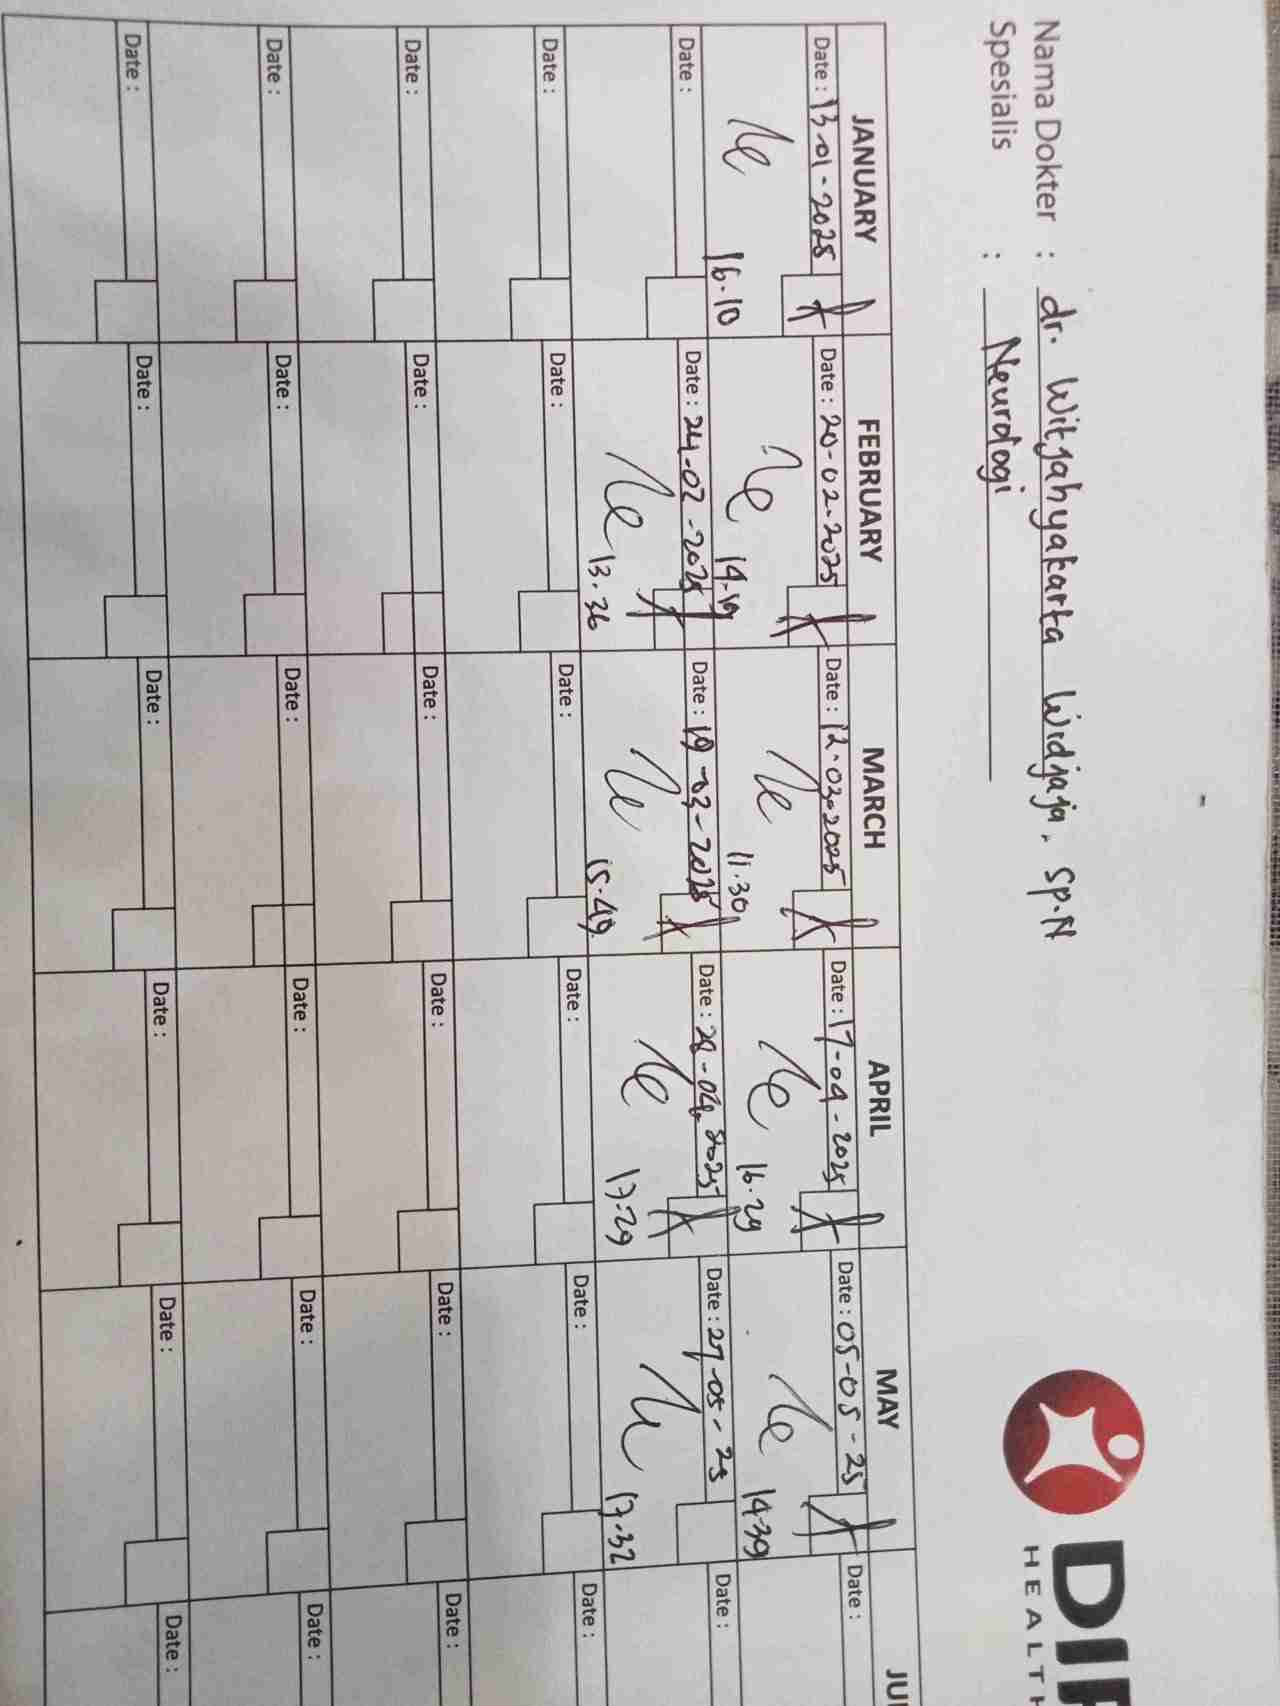 Nama Dokter : dr. Witjahyakarta Widjaja. Sp.N
Spesialis : Neurologi
HEALTH
JANUARY FEBRUARY MARCH APRIL MAY
Date : 13-01-2025 Date : 20-02-2025 Date : 12-03-2025 Date : 17-04-2025 Date : 05-05-25 Date :
16.10 14.19 11.30 16.29 14.39
Date : Date : 24-02-2025 Date : 19-03-2025 Date : 28-04-2025 Date : 27-05-25 Date :
13.36 15.49 17.29 17.32
Date : Date : Date : Date : Date : Date :
Date : Date : Date : Date : Date : Date :
Date : Date : Date : Date : Date : Date :
Date : Date : Date : Date : Date : Date :